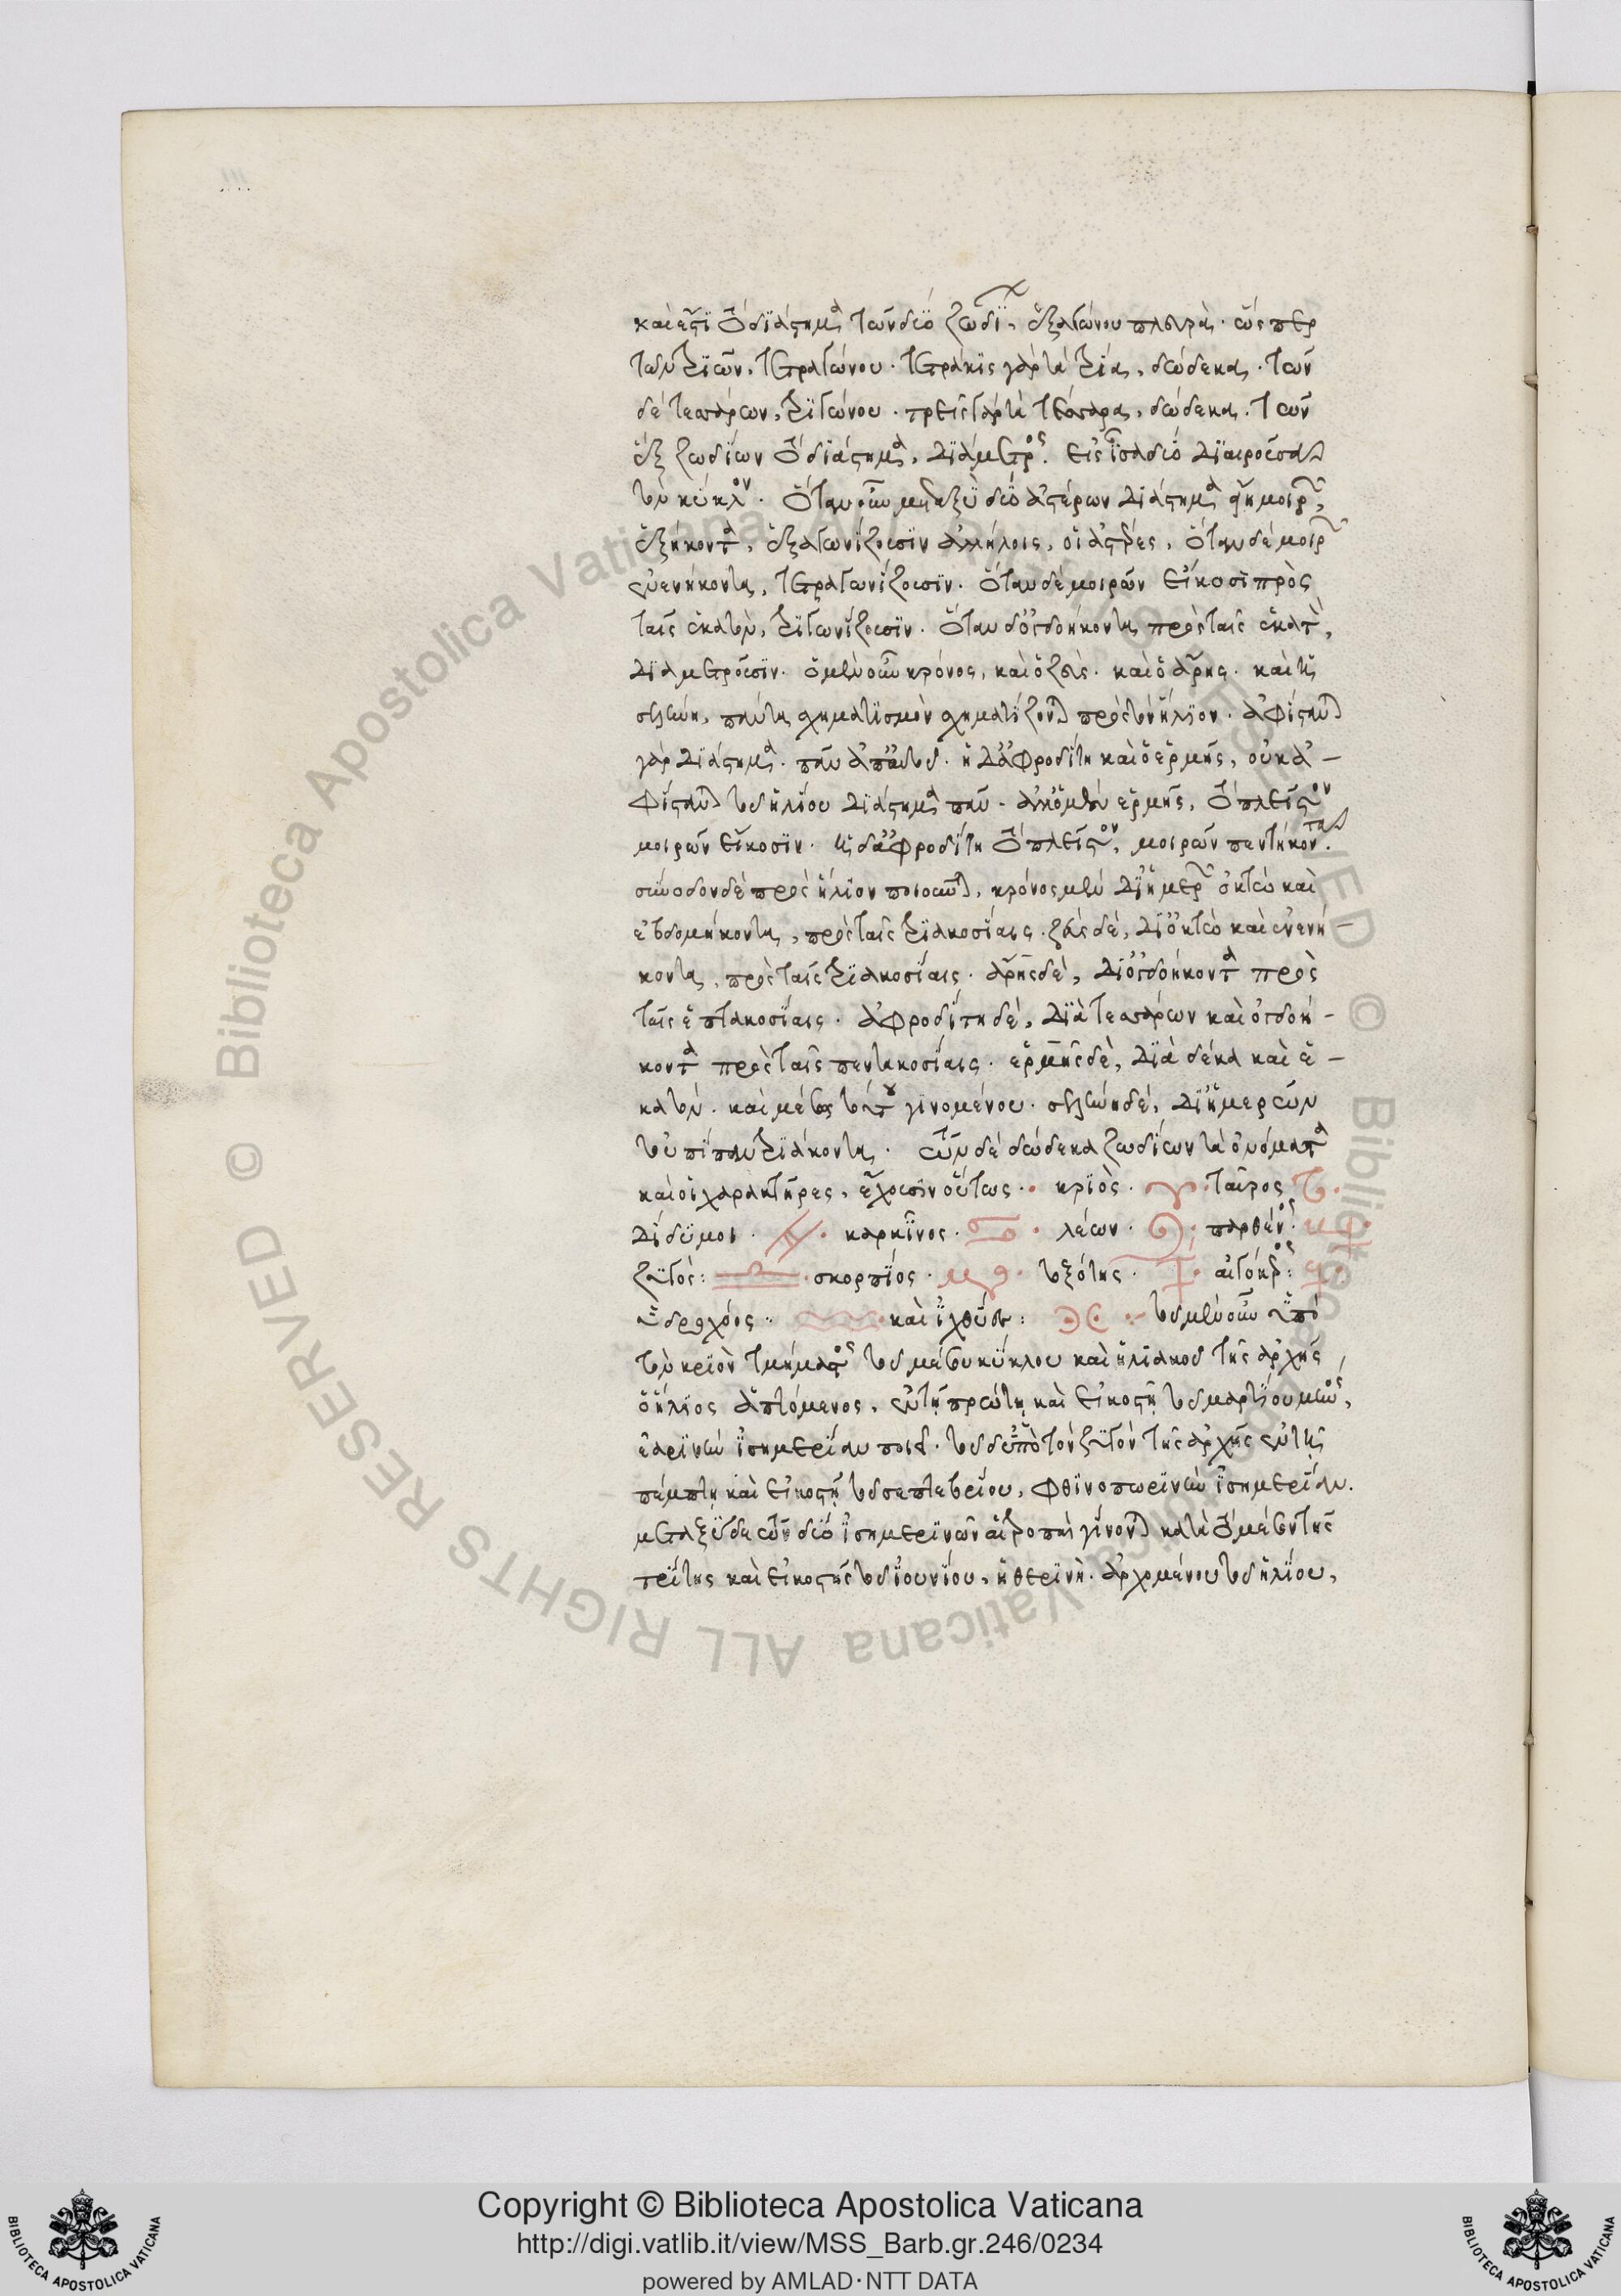 καὶ ἐστὶ τὸ διάστημα τῶν δύο ζωδίων, ἑξαγώνου πλευρά· ὥσπερ
τῶν τριῶν, τετραγώνου· τετράκις γὰρ τὰ τρία, δώδεκα· τῶν
δὲ τεσσάρων, τριγώνου· τρεῖς γὰρ τὰ τέσσαρα, δώδεκα. τῶν
ἓξ ζωδίων τὸ διάστημα, διάμετρος. εἰς ἴσα δύο διαιροῦσα
τὸν κύκλον. ὅταν οὖν μεταξὺ δύο ἀστέρων διάστημα ᾖ μοιρῶν
ἑξήκοντα, ἑξαγωνίζουσιν ἀλλήλοις, οἱ ἀστέρες, ὅταν δὲ μοιρῶν
ἐνενήκοντα, τετραγωνίζουσιν. ὅταν δὲ μοιρῶν εἴκοσι πρὸς
ταῖς ἑκατὸν, τριγωνίζουσιν. ὅταν δ' ὀγδοήκοντα πρὸς ταῖς ἑκατὸν,
διαμετροῦσιν. ὁ μὲν οὖν κρόνος, καὶ ὁ ζεύς· καὶ ὁ ἄρης· καὶ ἡ
σελήνη, πάντα σχηματισμὸν σχηματίζονται πρὸς τὸν ἥλιον. ἀφίστανται
γὰρ διάστημα πᾶν ἀπ' αὐτοῦ. ἡ δ' ἀφροδίτη καὶ ὁ ἑρμῆς, οὐκ ἀ-
φίστανται τοῦ ἡλίου διάστημα πᾶν· ἀλλ' ὁ μὲν ἑρμῆς, τὸ πλεῖστον
μοιρῶν εἴκοσιν. ἡ δ' ἀφροδίτη τὸ πλεῖστον, μοιρῶν πεντήκοντα.
σύνοδον δὲ πρὸς ἥλιον ποιοῦνται, κρόνος μὲν δι' ἡμερῶν ὀκτὼ καὶ
ἑβδομήκοντα, πρὸς ταῖς τριακοσίαις. ζεὺς δὲ, δι' ὀκτὼ καὶ ἐνενή-
κοντα, πρὸς ταῖς τριακοσίαις. ἄρης δὲ, δι' ὀγδοήκοντα πρὸς
ταῖς ἑπτακοσίαις. ἀφροδίτη δὲ, διὰ τεσσάρων καὶ ὀγδοή-
κοντα πρὸς ταῖς πεντακοσίαις. ἑρμῆς δὲ, διὰ δέκα καὶ ἑ-
κατὸν. καὶ μέσος τούτου γινομένου. σελήνη δὲ, δι' ἡμερῶν
τοὐπίπαν τριάκοντα. τῶν δὲ δώδεκα ζωδίων τὰ ὀνόματα
καὶ οἱ χαρακτῆρες, ἔχουσιν οὕτως· κριὸς· ♈ ταῦρος ♉
δίδυμοι· ♊ καρκῖνος· ♋ λέων· ♌ παρθένος· ♍
ζυγός: ♎ σκορπίος· ♏ τοξότης· ♐ αἰγόκερως: ♑
ὑδροχόος· ♒ καὶ ἰχθύες: ♓ τοῦ μὲν οὖν ὑπὸ
τὸν κριὸν τμήματος τοῦ μέσου κύκλου καὶ ἡλιακοῦ τῆς ἀρχῆς
ὁ ἥλιος ἁπτόμενος, ἐν τῇ πρώτῃ καὶ εἰκοστῇ τοῦ μαρτίου μηνὸς,
ἐαρινὴν ἰσημερίαν ποιεῖ. τοῦ δ' ὑπὸ τὸν ζυγὸν τῆς ἀρχῆς ἐν τῇ
πέμπτῃ καὶ εἰκοστῇ τοῦ σεπτεβρίου, φθινοπωρινὴν ἰσημερίαν.
μεταξὺ δὲ τῶν δύο ἰσημερινῶν αἱ τροπαὶ γίνονται κατὰ τὸ μέσον τῆς
τρίτης καὶ εἰκοστῆς τοῦ ἰουνίου, ἡ θερινὴ. ἀρχομένου τοῦ ἡλίου,
Copyright © Biblioteca Apostolica Vaticana
http://digi.vatlib.it/view/MSS_Barb.gr.246/0234
powered by AMLAD·NTT DATA
BIBLIOTECA APOSTOLICA VATICANA
BIBLIOTECA APOSTOLICA VATICANA
© Biblioteca Apostolica Vaticana ALL RIGHTS RESERVED © Biblioteca Apostolica Vaticana ALL RIGHTS RESERVED